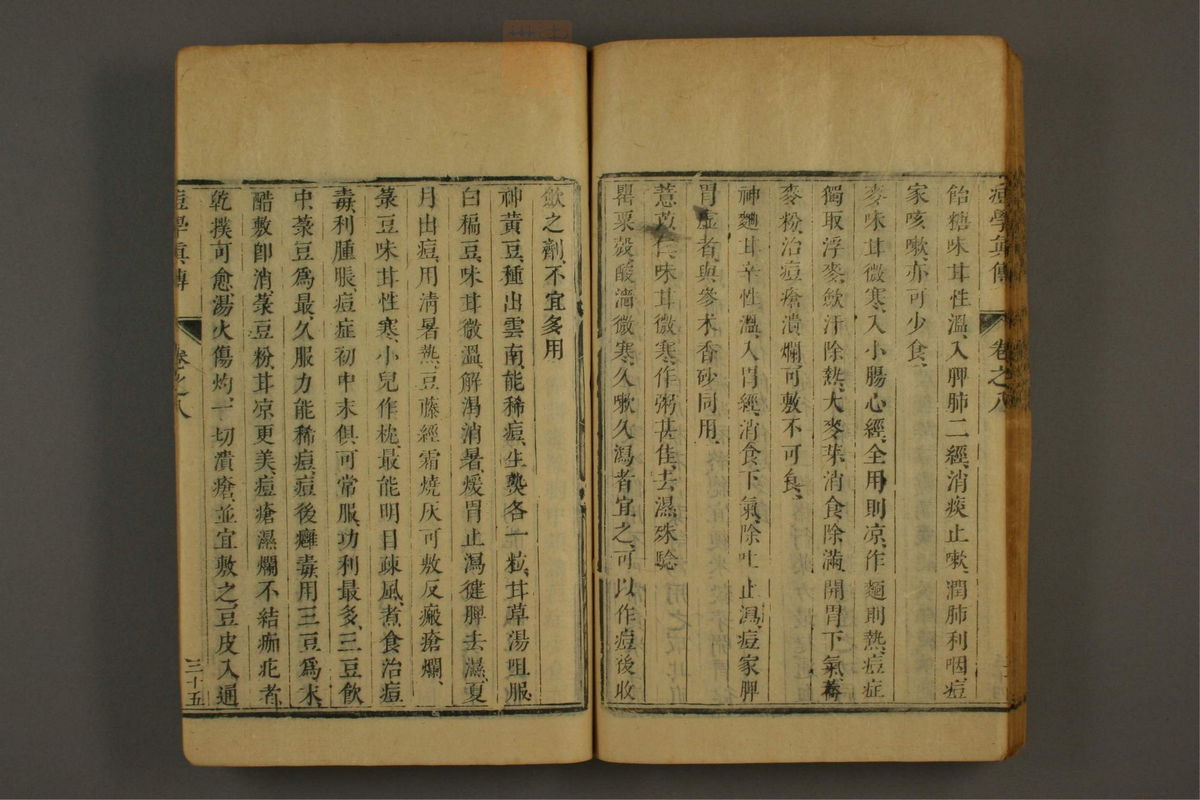 痘學眞傳 卷之八
飴糖味甘性溫、入脾肺二經、消痰止嗽、潤肺利咽、痘
家咳嗽、亦可少食、
麥味甘微寒、入小腸心經、全用則凉、作麵則熱、痘症
獨取浮麥、歛汗除熱、大麥芽消食除滿、開胃下氣、蕎
麥粉、治痘瘡潰爛、可敷不可食、
神麯甘辛性溫、入胃經、消食下氣、除吐止瀉、痘家脾
胃虛者、與參术香砂同用、
薏苡仁味甘微寒、作粥甚佳、去濕殊騐
罌粟殼、酸濇微寒、久嗽久瀉者宜之、可以作痘後收
歛之劑、不宜多用
神黃豆、種出雲南、能稀痘、生熟各一粒、甘草湯咀服
白稨豆、味甘微溫、解渴消暑、煖胃止瀉、健脾去濕、夏
月出痘、用淸暑熱、豆藤經霜燒灰可敷反瘢瘡爛、
菉豆味甘性寒、小兒作枕、最能明目疎風、煮食治痘
毒、利腫脹、痘症初中末俱可常服、功利最多、三豆飮
中、菉豆爲最、久服力能稀痘、痘後癰毒、用三豆爲末、
醋敷卽消、菉豆粉、甘凉更美、痘瘡濕爛不結痂疕者、
乾撲可愈、湯火傷灼、一切潰瘡、並宜敷之、豆皮入通
痘學眞傳 卷之八 三十五